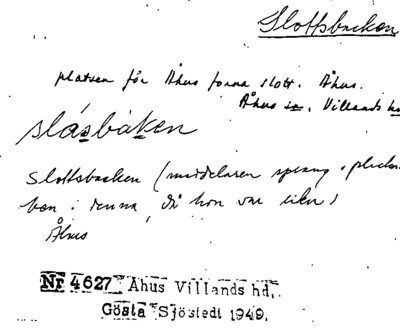 Slottsbacken
platsen för Åhus forna slott. Åhus.
Åhus sn. Villands hd
slásbáken
Slottsbacken (meddelaren sprang i
ben i denna, då hon var liken)
Åhus
Nr 4627 Åhus Villands hd,
Gösta Sjöstedt 1949.